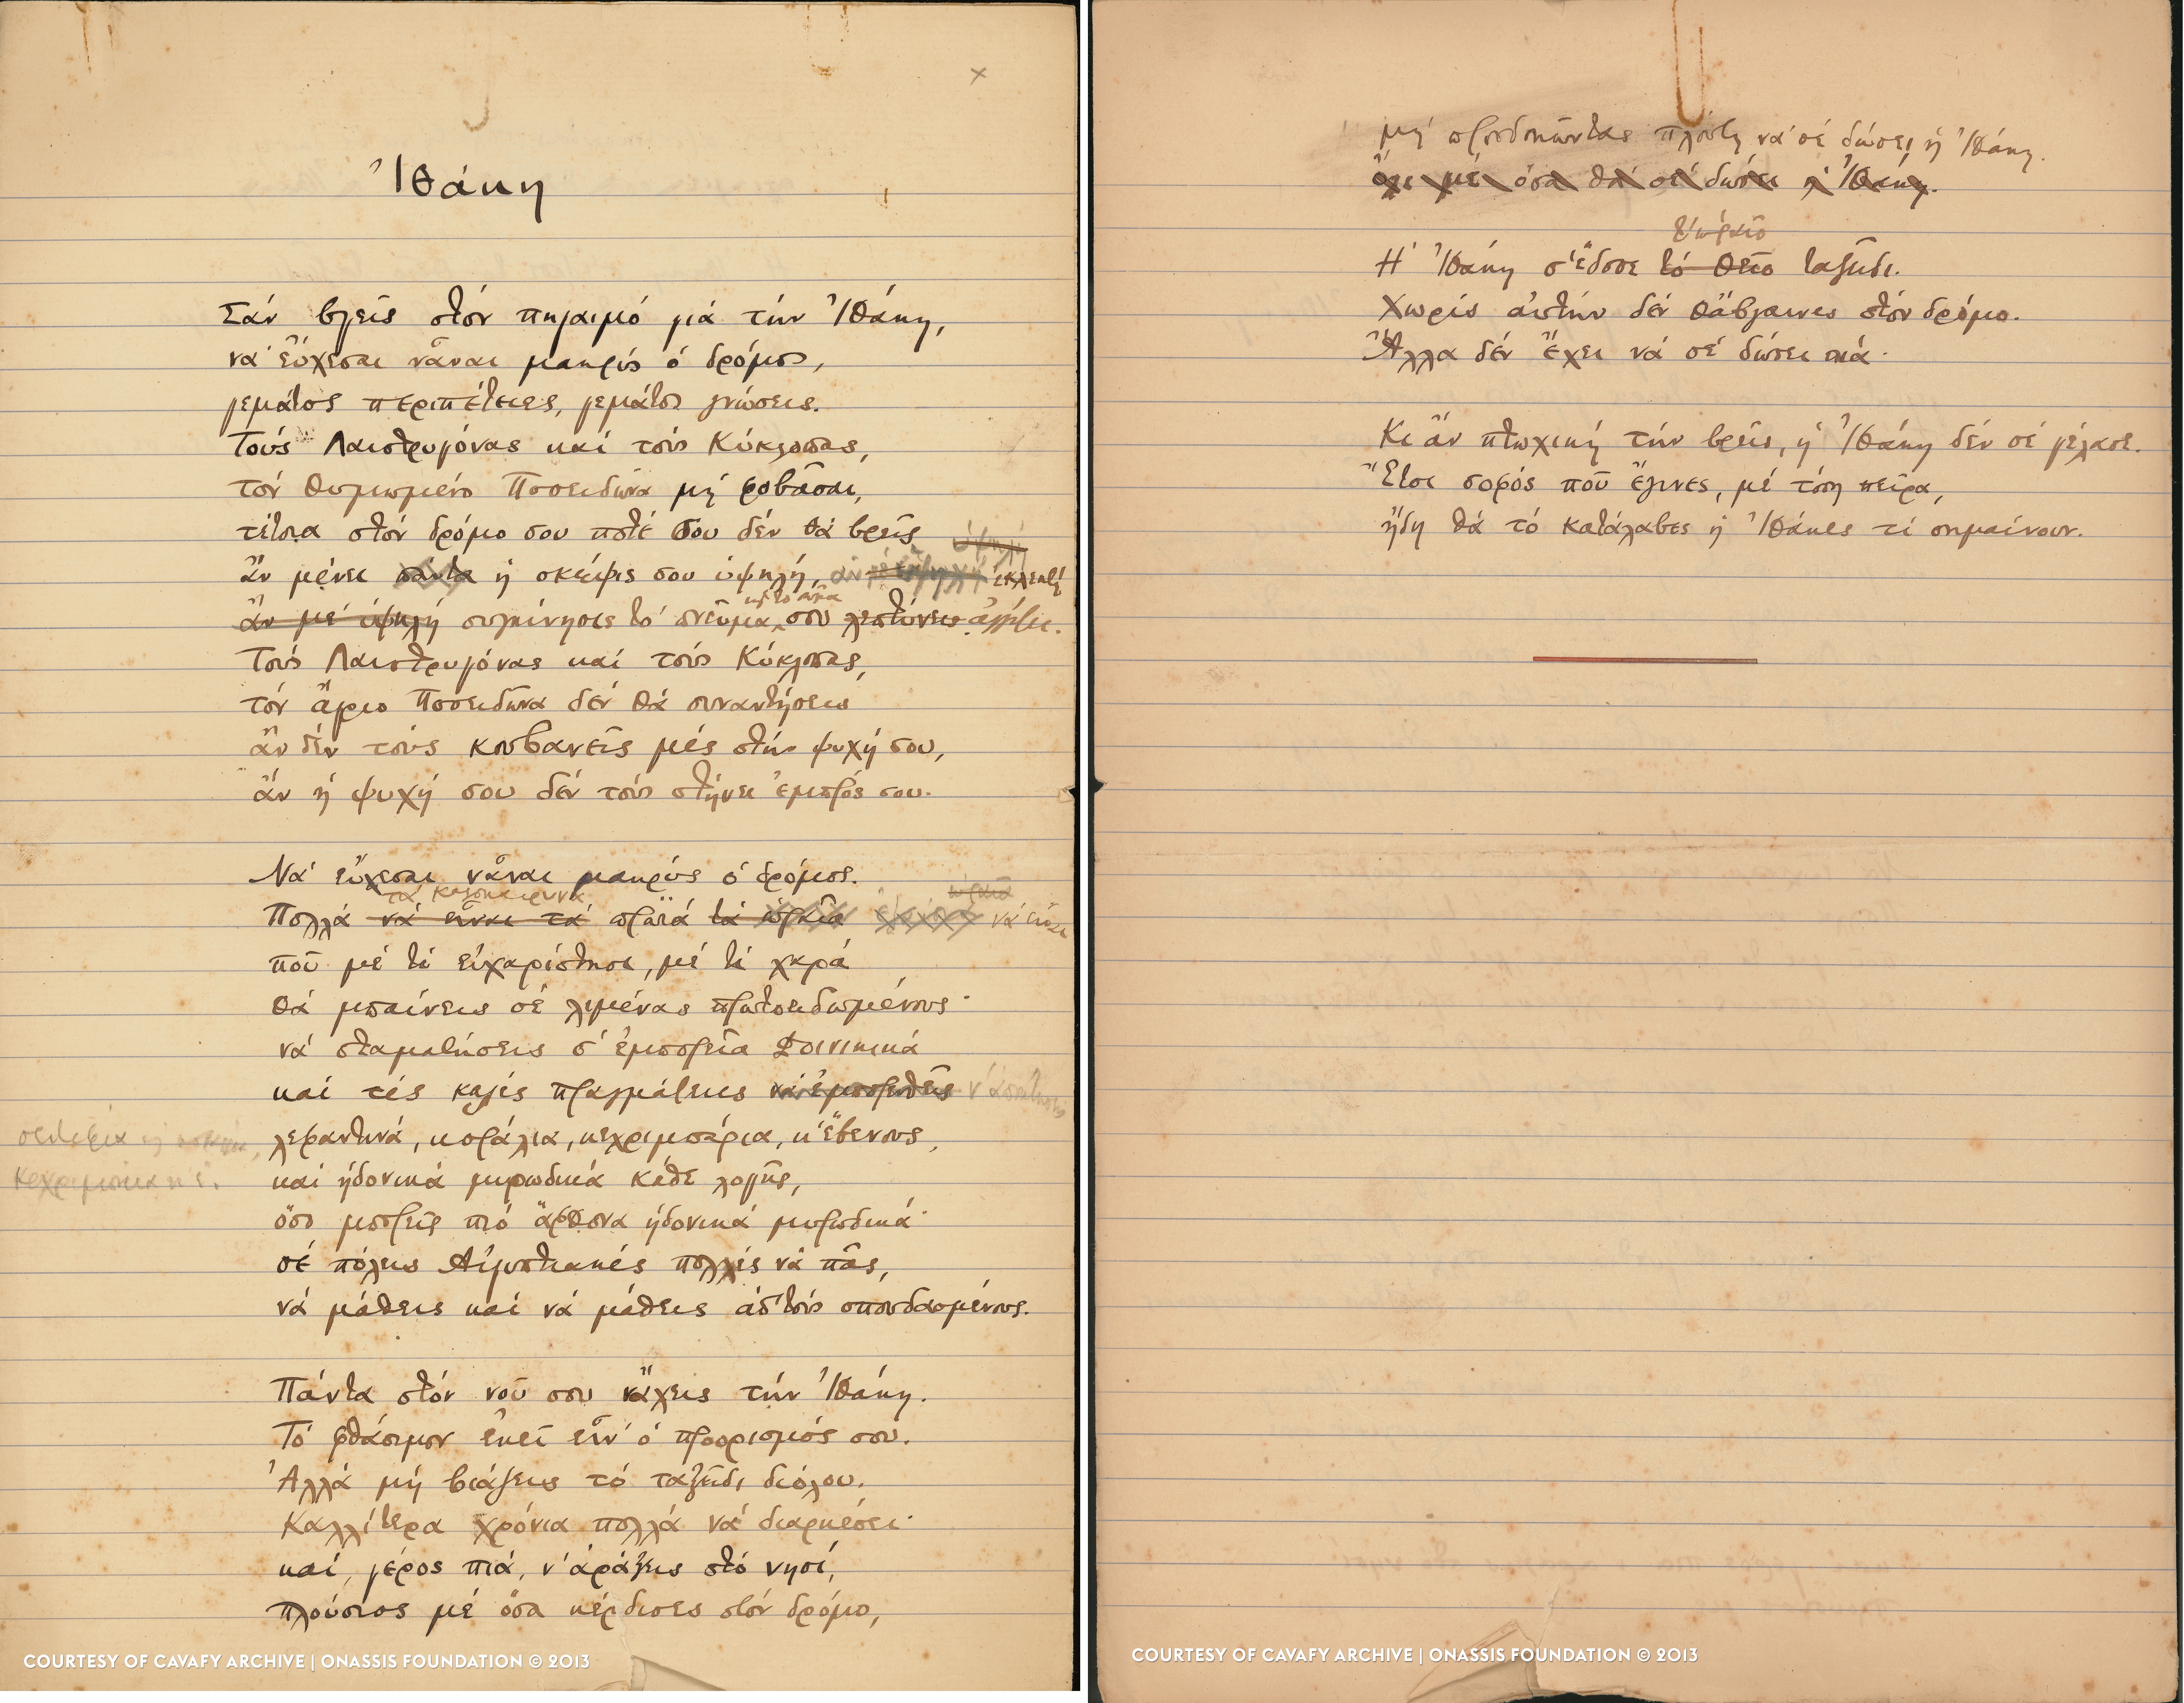 ×
Ἰθάκη
Σάν βγεῖς στόν πηγαιμό γιά τήν Ἰθάκη,
νά εὔχεσαι νἆναι μακρύς ὁ δρόμος,
γεμάτος περιπέτειες, γεμάτος γνώσεις.
Τούς Λαιστρυγόνας καί τούς Κύκλωπας,
τόν θυμωμένο Ποσειδῶνα μή φοβᾶσαι,
τέτοια στόν δρόμο σου ποτέ σου δέν θά βρεῖς
ὑψηλή
ἄν μένει πάντα ἡ σκέψις σου ὑψηλή, ἄν ἐκλεκτή
κ̣αὶ τὸ σῶμα
ἄν μέ ὑψηλή συγκίνησις τό πνεῦμα σου λεπτύνει ἀγγίζει.
Τούς Λαιστρυγόνας καί τούς Κύκλωπας,
τόν ἄγριο Ποσειδῶνα δέν θά συναντήσεις
ἄν δέν τούς κουβανεῖς μές στήν ψυχή σου,
ἄν ἡ ψυχή σου δέν τούς στήνει ἐμπρός σου.
Νά εὔχεσαι νἆναι μακρύς ὁ δρόμος.
τά καλοκαιρινά ὡραῖα
Πολλά νά εἶναι τά πρωϊά τά ὡραῖα νά εἶναι
πού μέ τί εὐχαρίστησι, μέ τί χαρά
θά μπαίνεις σέ λιμένας πρωτοειδωμένους·
νά σταματήσεις σ' ἐμπορεῖα Φοινικικά
καί τές καλές πραγμάτειες νά ἐμπορευθεῖς ν' ἀποκτήσεις
σεντέφια καί κοράλλια, λεφαντινά, κοράλια, κεχριμπάρια, κ' ἔβενους,
κεχριμπάρια κ' ἔ. καί ἡδονικά μυρωδικά κάθε λογῆς,
ὅσο μπορεῖς πιό ἄφθονα ἡδονικά μυρωδικά·
σέ πόλεις Αἰγυπτιακές πολλές νά πᾶς,
νά μάθεις καί νά μάθεις ἀπ' τούς σπουδασμένους.
Πάντα στόν νοῦ σου νἄχεις τήν Ἰθάκη.
Τό φθάσιμον ἐκεῖ εἶν' ὁ προορισμός σου.
Ἀλλά μή βιάζεις τό ταξεῖδι διόλου.
Καλλίτερα χρόνια πολλά νά διαρκέσει·
καί, γέρος πιά, ν' ἀράξεις στό νησί,
πλούσιος μέ ὅσα κέρδισες στόν δρόμο,
COURTESY OF CAVAFY ARCHIVE | ONASSIS FOUNDATION © 2013
μή προσδοκῶντας πλούτη νά σέ δώσει ἡ Ἰθάκη.
ὄχι μέ ὅσα θά σέ δώσει ἡ Ἰθάκη.
τ' ὡραῖο
Ἡ Ἰθάκη σ' ἔδωσε τό θεῖο ταξεῖδι.
Χωρίς αὐτήν δέν θἄβγαινες στόν δρόμο.
Ἄλλα δέν ἔχει νά σέ δώσει πιά.
Κι ἄν πτωχική τήν βρεῖς, ἡ Ἰθάκη δέν σέ γέλασε.
Ἔτσι σοφός πού ἔγινες, μέ τόση πεῖρα,
ἤδη θά τό κατάλαβες ἡ Ἰθάκες τί σημαίνουν.
COURTESY OF CAVAFY ARCHIVE | ONASSIS FOUNDATION © 2013